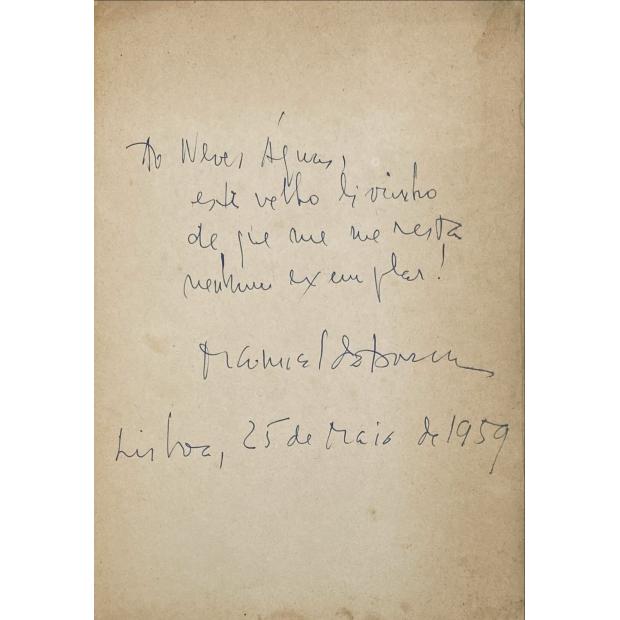 Ao Neves Águas,
este velho livrinho
de que me não resta
nenhum exemplar!
Manuel da Fonseca
Lisboa, 25 de Maio de 1959